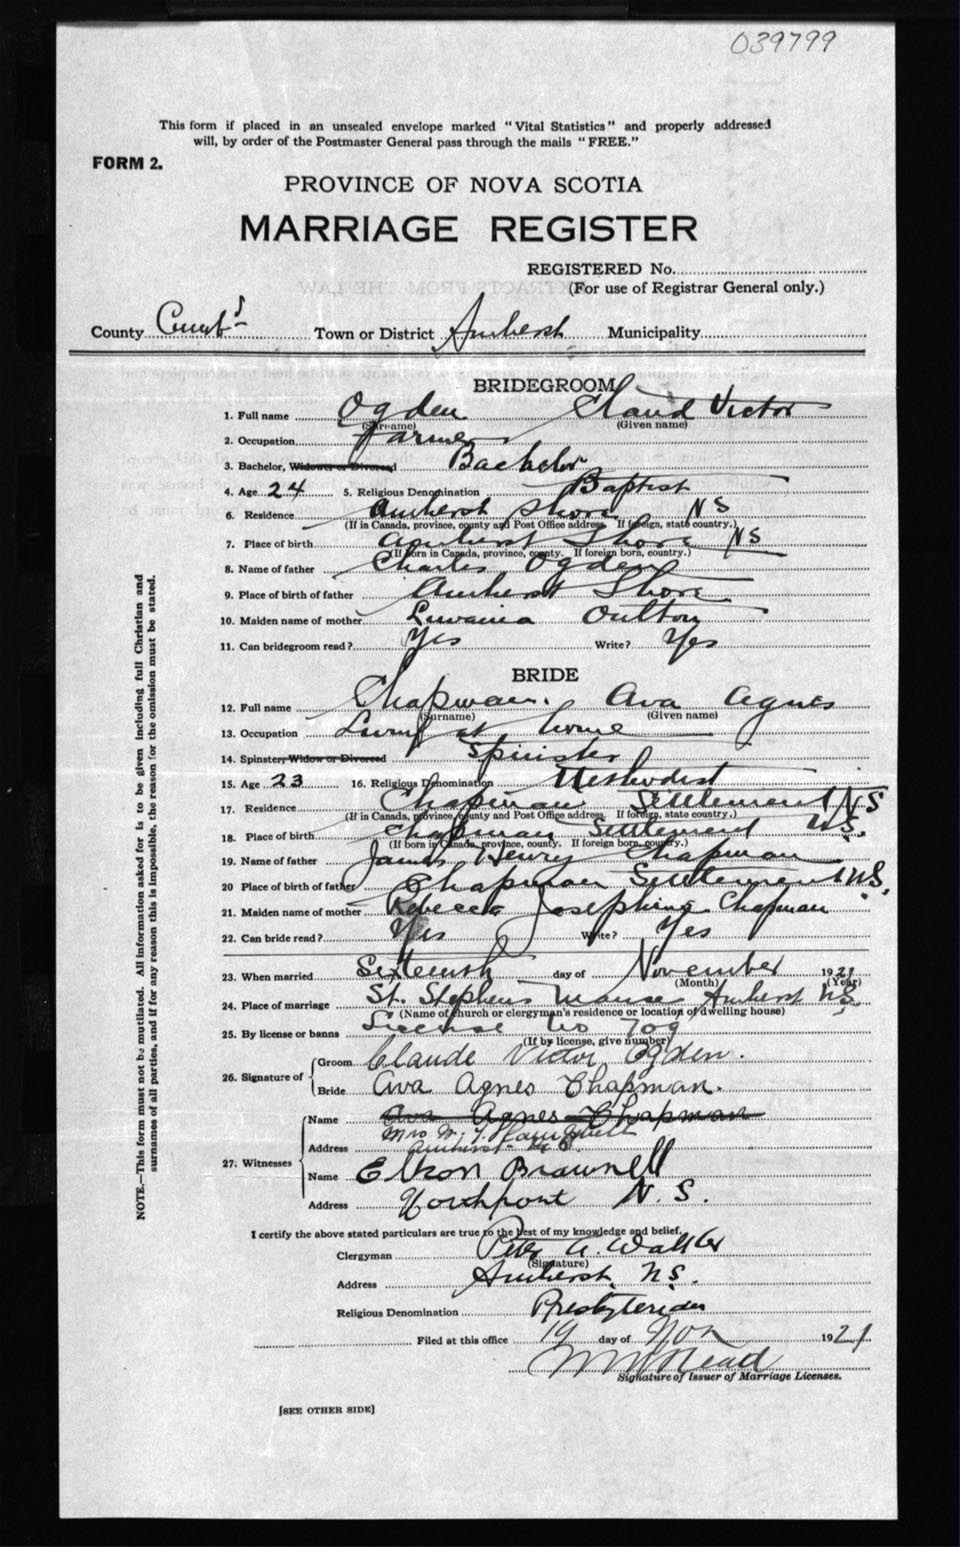 039799
This form if placed in an unsealed envelope marked "Vital Statistics" and properly addressed
will, by order of the Postmaster General pass through the mails "FREE."
FORM 2.
PROVINCE OF NOVA SCOTIA
MARRIAGE REGISTER
REGISTERED No.
(For use of Registrar General only.)
County Cumbd Town or District Amherst Municipality
BRIDEGROOM
1. Full name Ogden Claud Victor
(Surname) (Given name)
2. Occupation Farmer
3. Bachelor, Widower or Divorced Bachelor
4. Age 24 5. Religious Denomination Baptist
6. Residence Amherst Shore NS
(If in Canada, province, county and Post Office address. If foreign, state country.)
7. Place of birth Amherst Shore NS
(If born in Canada, province, county. If foreign born, country.)
8. Name of father Charles Ogden
9. Place of birth of father Amherst Shore
10. Maiden name of mother Oulton
11. Can bridegroom read? Yes Write? Yes
BRIDE
12. Full name Chapman. Ava Agnes
(Surname) (Given name)
13. Occupation Living at home
14. Spinster, Widow or Divorced Spinster
15. Age 23 16. Religious Denomination Methodist
17. Residence Chapman Settlement NS
(If in Canada, province, county and Post Office address. If foreign, state country.)
18. Place of birth Chapman Settlement NS.
(If born in Canada, province, county. If foreign born, country.)
19. Name of father James Henry Chapman
20 Place of birth of father Chapman Settlement NS.
21. Maiden name of mother Rebecca Josephine Chapman
22. Can bride read? Yes Write? Yes
23. When married Sixteenth day of November 1921
(Month) (Year)
24. Place of marriage St. Stephens Manse Amherst NS
(Name of church or clergyman's residence or location of dwelling house)
25. By license or banns License No 709
(If by license, give number)
26. Signature of Groom Claude Victor Ogden.
Bride Ava Agnes Chapman.
27. Witnesses Name Ava Agnes Chapman
Mrs W. T.
Address Amherst N.S.
Name Elson Brownell
Address Northport N.S.
I certify the above stated particulars are true to the best of my knowledge and belief.
Clergyman Peter A. Walker
(Signature)
Address Amherst, N.S.
Religious Denomination Presbyterian
Filed at this office 19 day of Nov 1921.
Signature of Issuer of Marriage Licenses.
[SEE OTHER SIDE]
NOTE.—This form must not be mutilated. All information asked for is to be given including full Christian and
surnames of all parties, and if for any reason this is impossible, the reason for the omission must be stated.